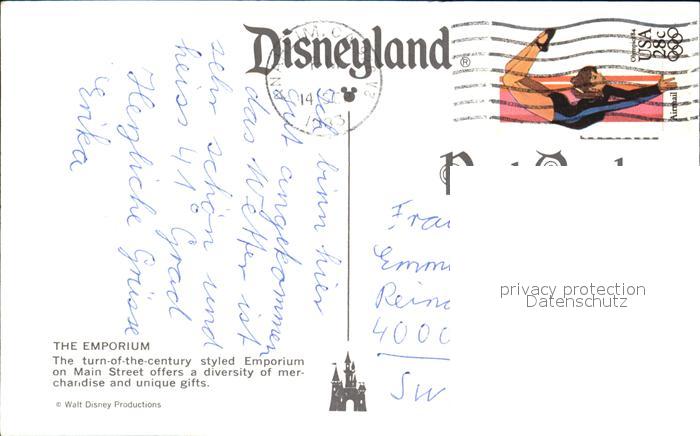 Disneyland®
ANAHEIM, C
14
Olympics 84
USA
28c
Airmail
privacy protection
Datenschutz
Ich binn hier
gut angekommen
das Wetter ist
sehr schön und
heiss 41° Grad
Herzliche Grüsse
Erika
Frau
Emm
Rein
4000
SW
privacy protection
Datenschutz
THE EMPORIUM
The turn-of-the-century styled Emporium
on Main Street offers a diversity of mer-
chandise and unique gifts.
© Walt Disney Productions